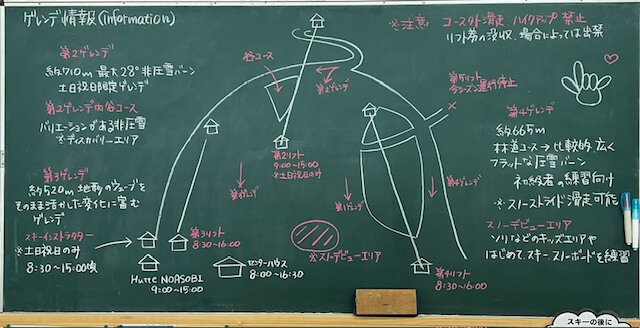 ゲレンデ情報(information)
※注意 コース外滑走 ハイクアップ禁止
リフト券の没収、場合によっては出禁
第2ゲレンデ
約710m 最大28°非圧雪バーン
土日祝日限定ゲレンデ
第2ゲレンデ内谷コース
バリエーションがある非圧雪
※ディスカバリーエリア
第3ゲレンデ
約520m 地形のウェーブを
そのまま活かした変化に富む
ゲレンデ
スキーインストラクター
※土日祝日のみ
8:30〜15:00頃
谷コース
第2ゲレンデ
第2リフト
9:00〜15:00
※土日祝のみ
第3ゲレンデ
第3リフト
8:30-16:00
Hutte NOASOBI
9:00〜15:00
センターハウス
8:00〜16:30
※スノーデビューエリア
第1ゲレンデ
第4ゲレンデ
第1リフト
8:30〜16:00
第5リフト
今シーズン運行停止
×
第4ゲレンデ
約665m
林道コース→比較的広く
フラットな圧雪バーン
初級者の練習向け
※スノーストライド滑走可能
スノーデビューエリア
ソリなどのキッズエリアや
はじめてスキー、スノーボードを練習
スキーの後に